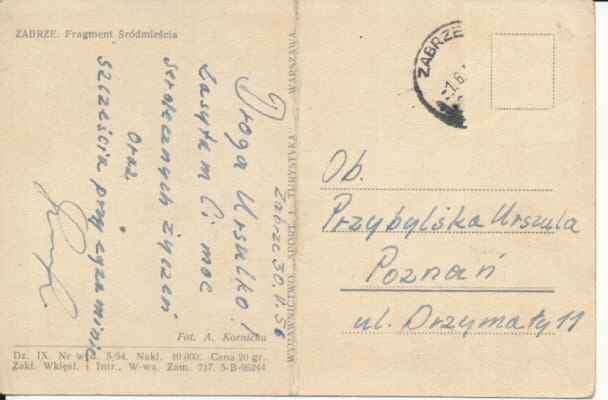 ZABRZE. Fragment Śródmieścia
Zabrze 30.V.56
Droga Urszulko!
Zasyłam Ci moc
serdecznych życzeń
oraz
szczęścia przy egzaminie
Fot. A. Kornicka
Dz. IX. Nr wyd. 5/54. Nakł. 10 000. Cena 20 gr.
Zakł. Wklęsł. i Intr., W-wa. Zam. 717. 5-B-95244
WYDAWNICTWO „SPORT I TURYSTYKA” WARSZAWA
ZABRZE
Ob.
Przybylska Urszula
Poznań
ul. Drzymały 11